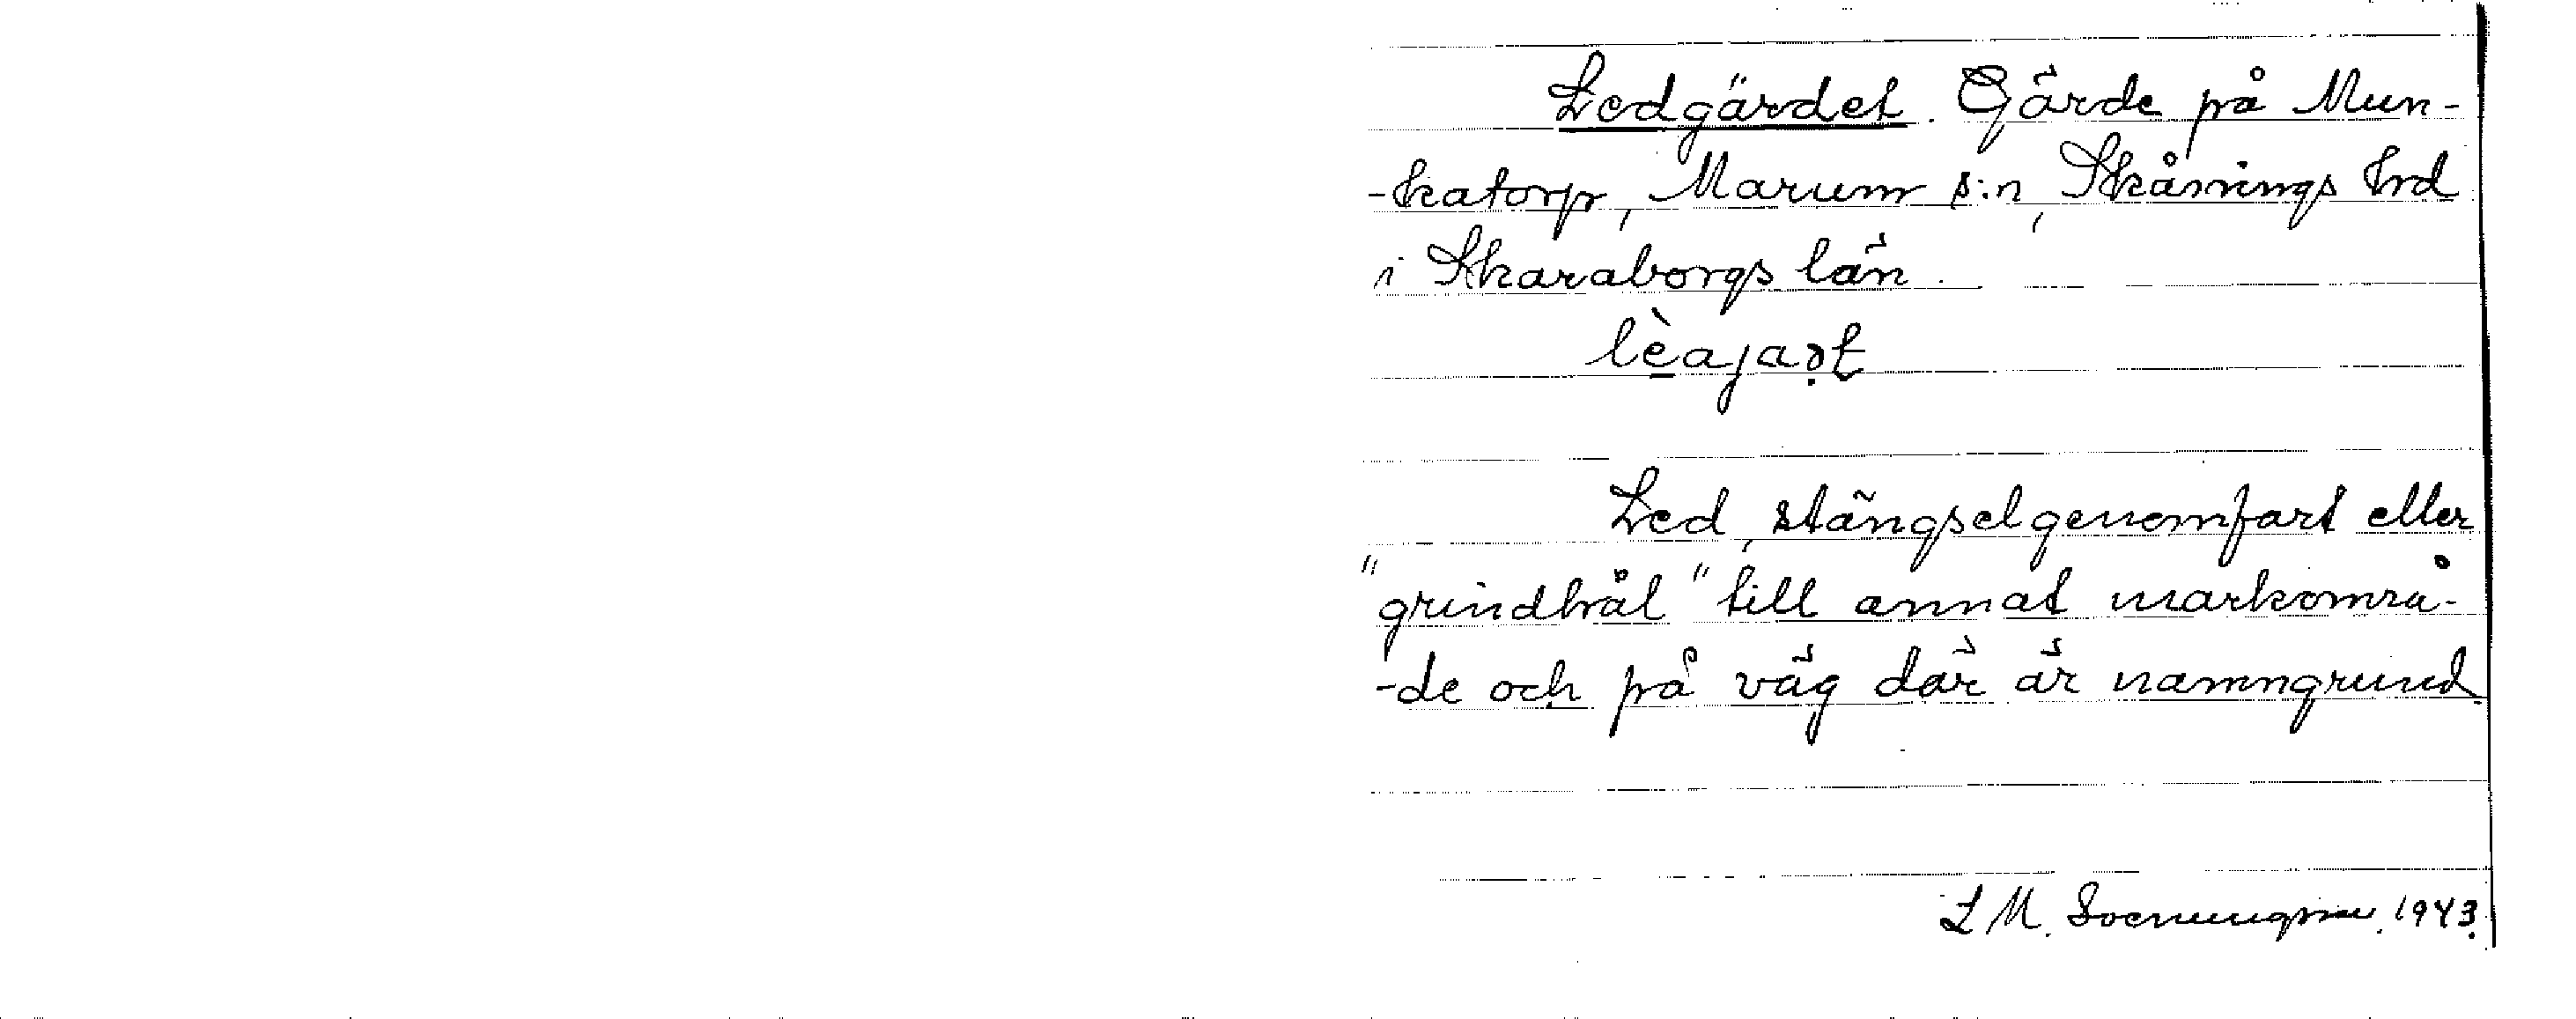 Ledgärdet. Gärde på Mun-
-katorp, Marum s:n, Skånings hrd
i Skaraborgs län.
lèajaṛt
Led, stängselgenomfart eller
"grindhål" till annat markområ-
-de och på väg där är namngrund
L M. Svenungsson. 1943.